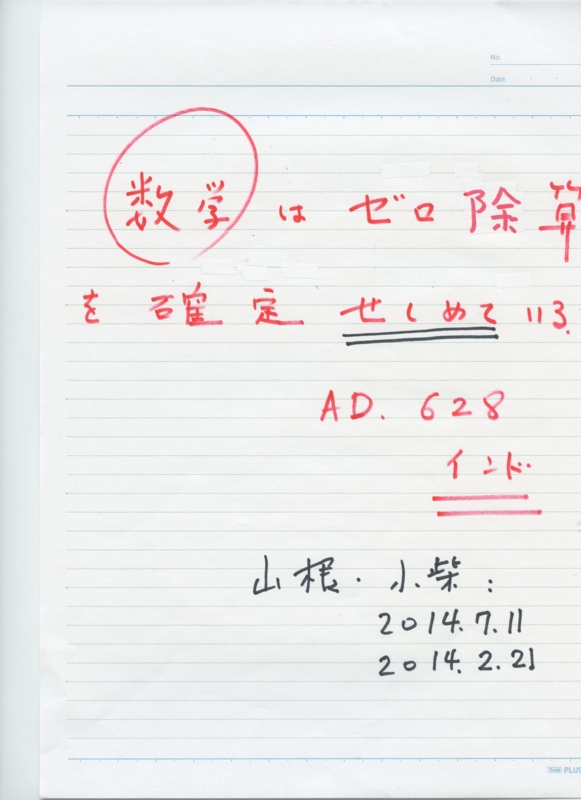 No.
Date
数学 は ゼロ 除算
を 確定 せしめている.
AD. 628
インド.
山根・小柴:
2014.7.11
2014.2.21
PLUS